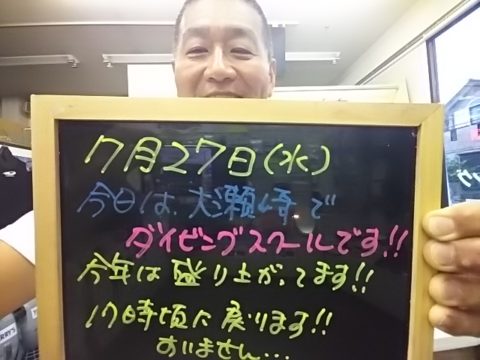 7月27日(水)
今日は、大瀬崎で
ダイビングスクールです!!
今年は盛り上がってます!!
17時頃に戻ります!!
すいません…